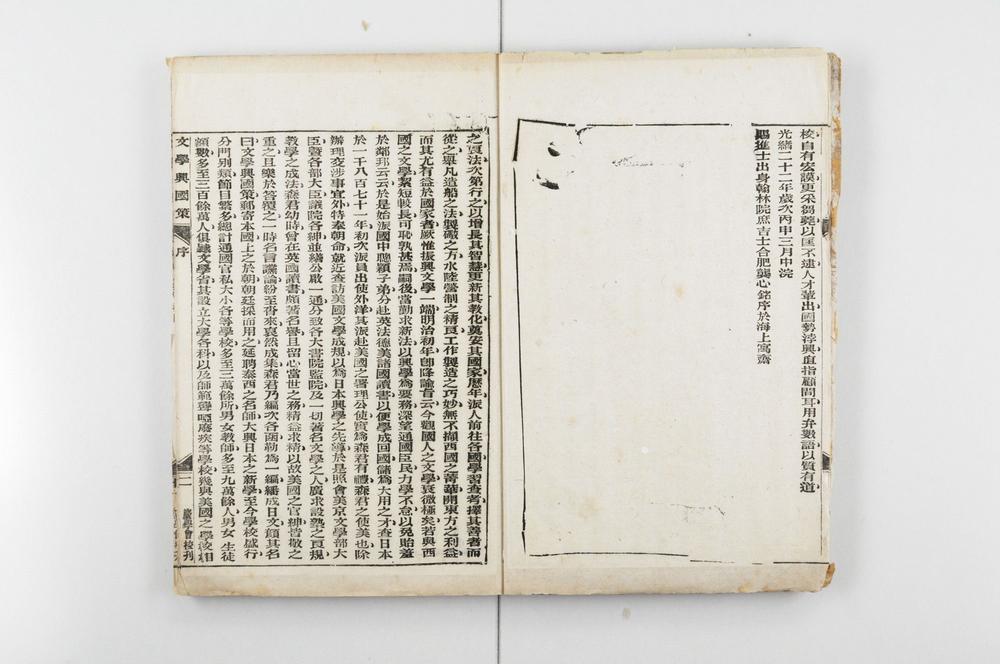 校自有宏謨更采芻蕘以匡不逮人才輩出國勢浡興直指顧間耳用弁數語以質有道
光緒二十二年歲次丙申三月中浣
賜進士出身翰林院庶吉士合肥龔心銘序於海上寓齋
之良法次第行之以增長其智慧更新其教化奠安其國家歷年派人前往各國學習查考擇其善者而
從之舉凡造船之法製礮之方水陸營制之精良工作製造之巧妙無不擷西國之菁華開東方之利益
而其尤有益於國家者厥惟振興文學一端明治初年卽降諭旨云今觀國人之文學衰微極矣若與西
國之文學絜短較長可恥孰甚焉嗣後當勤求新法以興學爲要務深望通國臣民力學不怠以免貽羞
於鄰邦云云於是始派國中聰穎子弟分赴英法德美諸國讀書以便學成回國儲爲大用之才查日本
於一千八百七十一年初次派員出使外洋其派赴美國之署理公使實爲森君有禮森君之使美也除
辦理交涉事宜外特奉朝命就近查訪美國文學成規以爲日本興學之先導於是照會美京文學部大
臣暨各部大臣議院各紳並繕公啟一通分致各大書院監院及一切著名文學之人廣求設塾之良規
教學之成法森君幼時曾在英國讀書頗著名譽且留心當世之務精益求精以故美國之官紳皆敬之
重之且樂於答覆之一時名言讜論紛至沓來裒然成集森君乃編次各函勒爲一編繙成日文顏其名
曰文學興國策郵寄本國上之於朝朝廷採而用之延聘泰西之名師大興日本之新學至今學校盛行
分門別類節目繁多總計通國官私大小各等學校多至三萬餘所男女教師多至九萬餘人男女生徒
額數多至三百餘萬人俱隸文學省其設立大學各科以及師範聾啞廢疾等學校幾與美國之學校相
文學興國策 序 二 廣學會校刊